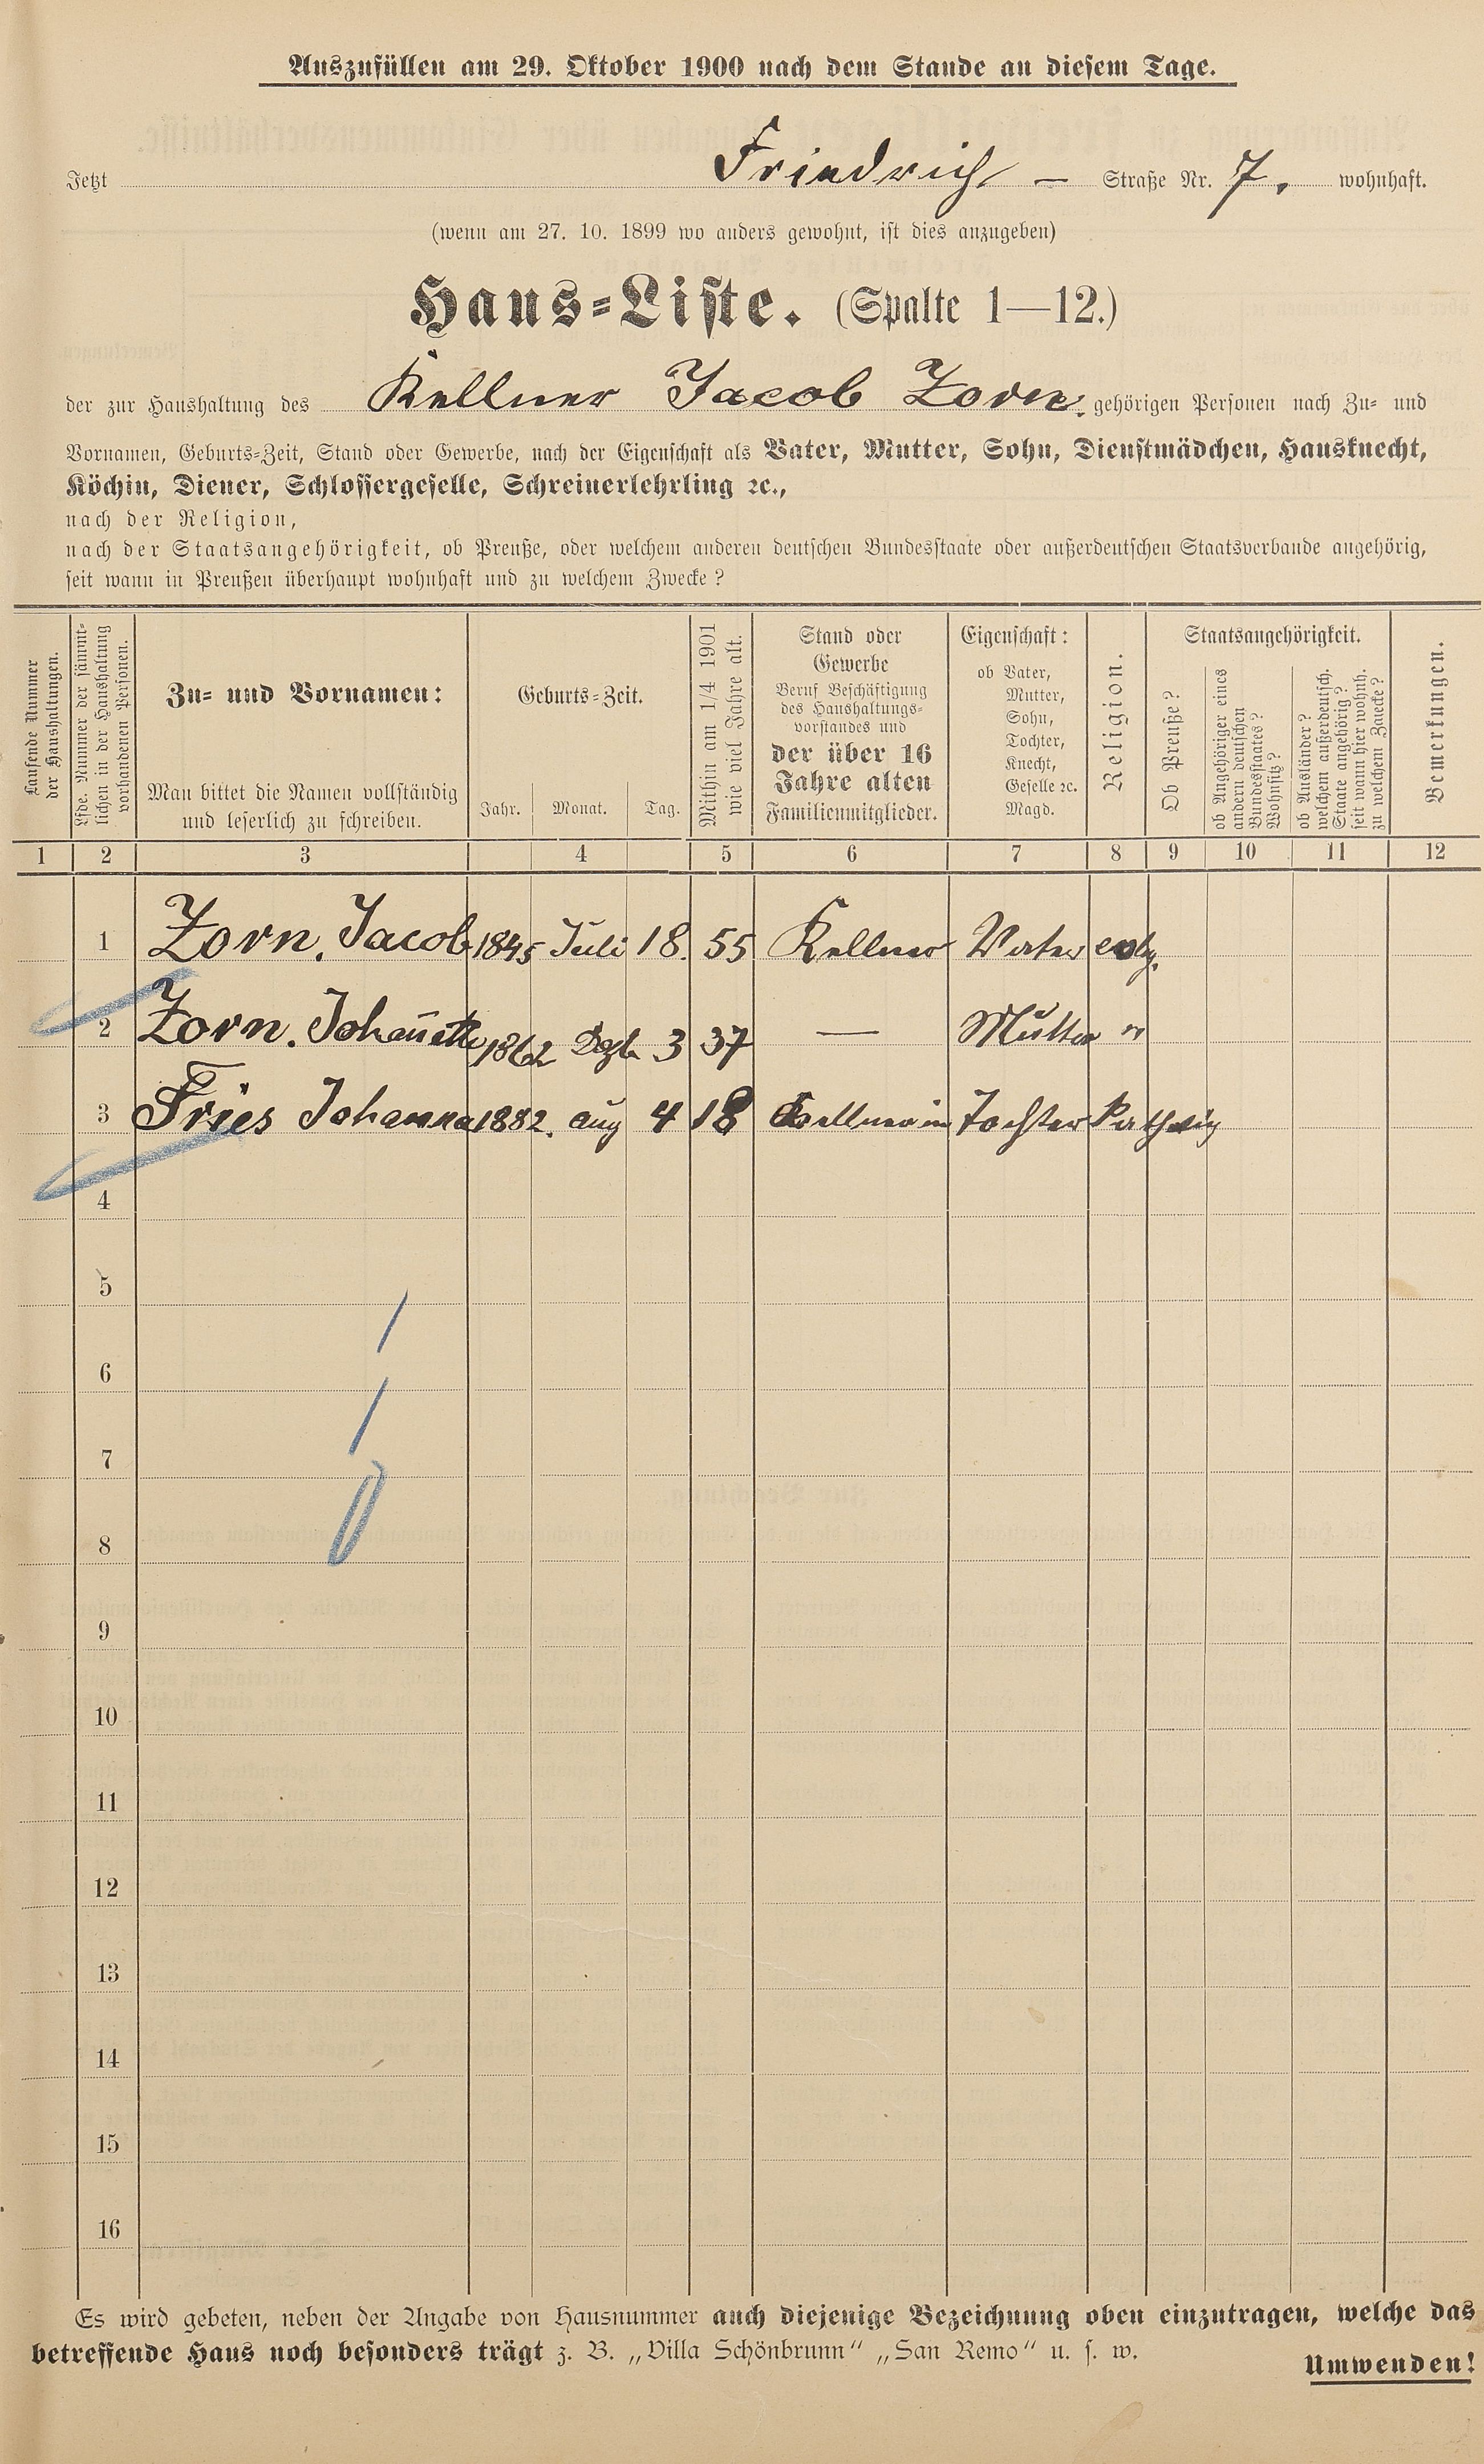 Auszufüllen am 29. Oktober 1900 nach dem Stande an diesem Tage.
Jetzt Friedrich – Straße Nr. 7. wohnhaft.
(wenn am 27. 10. 1899 wo anders gewohnt, ist dies anzugeben)
Haus=Liste. (Spalte 1—12.)
der zur Haushaltung des Kellner Jacob Zorn. gehörigen Personen nach Zu- und
Vornamen, Geburts=Zeit, Stand oder Gewerbe, nach der Eigenschaft als Vater, Mutter, Sohn, Dienstmädchen, Hausknecht,
Köchin, Diener, Schlossergeselle, Schreinerlehrling ꝛc.,
nach der Religion,
nach der Staatsangehörigkeit, ob Preuße, oder welchem anderen deutschen Bundesstaate oder außerdeutschen Staatsverbande angehörig,
seit wann in Preußen überhaupt wohnhaft und zu welchem Zwecke?
Laufende Nummer
der Haushaltungen.
Lfde. Nummer der sämmt-
lichen in der Haushaltung
vorhandenen Personen.
Zu- und Vornamen:
Man bittet die Namen vollständig
und leserlich zu schreiben.
Geburts=Zeit.
Jahr. Monat. Tag.
Mithin am 1/4 1901
wie viel Jahre alt.
Stand oder
Gewerbe
Beruf Beschäftigung
des Haushaltungs-
vorstandes und
der über 16
Jahre alten
Familienmitglieder.
Eigenschaft:
ob Vater,
Mutter,
Sohn,
Tochter,
Knecht,
Geselle ꝛc.
Magd.
Religion.
Staatsangehörigkeit.
Ob Preuße?
ob Angehöriger eines
andern deutschen
Bundesstaates?
Wohnsitz?
ob Ausländer?
welchem außerdeutsch.
Staate angehörig?
seit wann hier wohnh.
zu welchem Zwecke?
Bemerkungen.
1 2 3 4 5 6 7 8 9 10 11 12
1 Zorn. Jacob 1845 Juli 18. 55 Kellner Vater evlg.
2 Zorn. Johan̄ette 1862 Dezb. 3 37 — Mutter "
3 Fries Johanna 1882. aug 4 18 Kellnerin Tochter Kathlig
4
5
6
7
8
9
10
11
12
13
14
15
16
Es wird gebeten, neben der Angabe von Hausnummer auch diejenige Bezeichnung oben einzutragen, welche das
betreffende Haus noch besonders trägt z. B. „Villa Schönbrunn“ „San Remo“ u. s. w.
Umwenden!